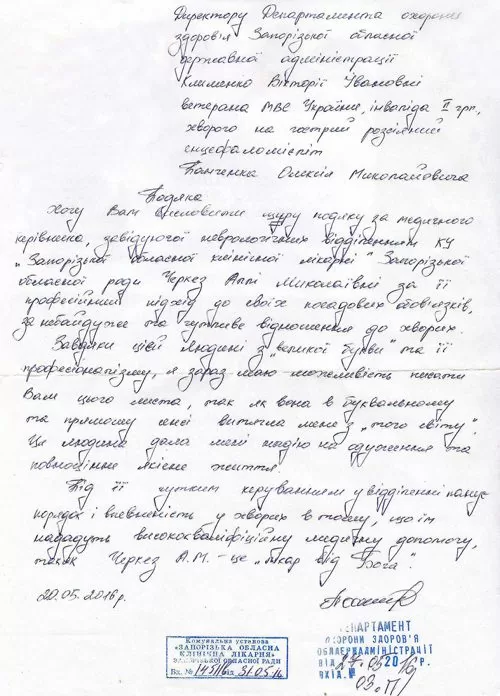 Директору Департамента охорони
здоров'я Запорізької обласної
державної адміністрації
Клименко Вікторії Іванівні
ветерана МВС України, інваліда II груп,
хворого на гострий розсіяний
енцефаломієліт
Панченка Олексія Миколайовича
Подяка
Хочу Вам висловити щиру подяку за медичного
керівника, завідуючої неврологічним відділенням КУ
„Запорізької обласної клінічної лікарні" Запорізької
обласної ради Черкез Аллі Миколаївні за її
професійний підхід до своїх посадових обов'язків,
за небайдуже та чутливе відношення до хворих.
Завдяки цієй Людині з „великої букви" та її
професіоналізму, я зараз маю можливість писати
Вам цього листа, так як вона в буквальному
та прямому сенсі витягла мене з „того світу".
Ця людина дала мені надію на одужання та
повноцінне якісне життя.
Під її чутким керуванням у відділенні панує
порядок і впевненість у хворих в тому, що їм
нададуть висококваліфіційну медичну допомогу,
так як Черкез А.М. - це „лікар від Бога".
20.05.2016р.
Комунальна установа
«ЗАПОРІЗЬКА ОБЛАСНА
КЛІНІЧНА ЛІКАРНЯ»
ЗАПОРІЗЬКОЇ ОБЛАСНОЇ РАДИ
Вх. № від 31.05.16
ДЕПАРТАМЕНТ
ОХОРОНИ ЗДОРОВ'Я
ОБЛДЕРЖАДМІНІСТРАЦІЇ
ВІД 27.05 2016 р.
ВХІД.№